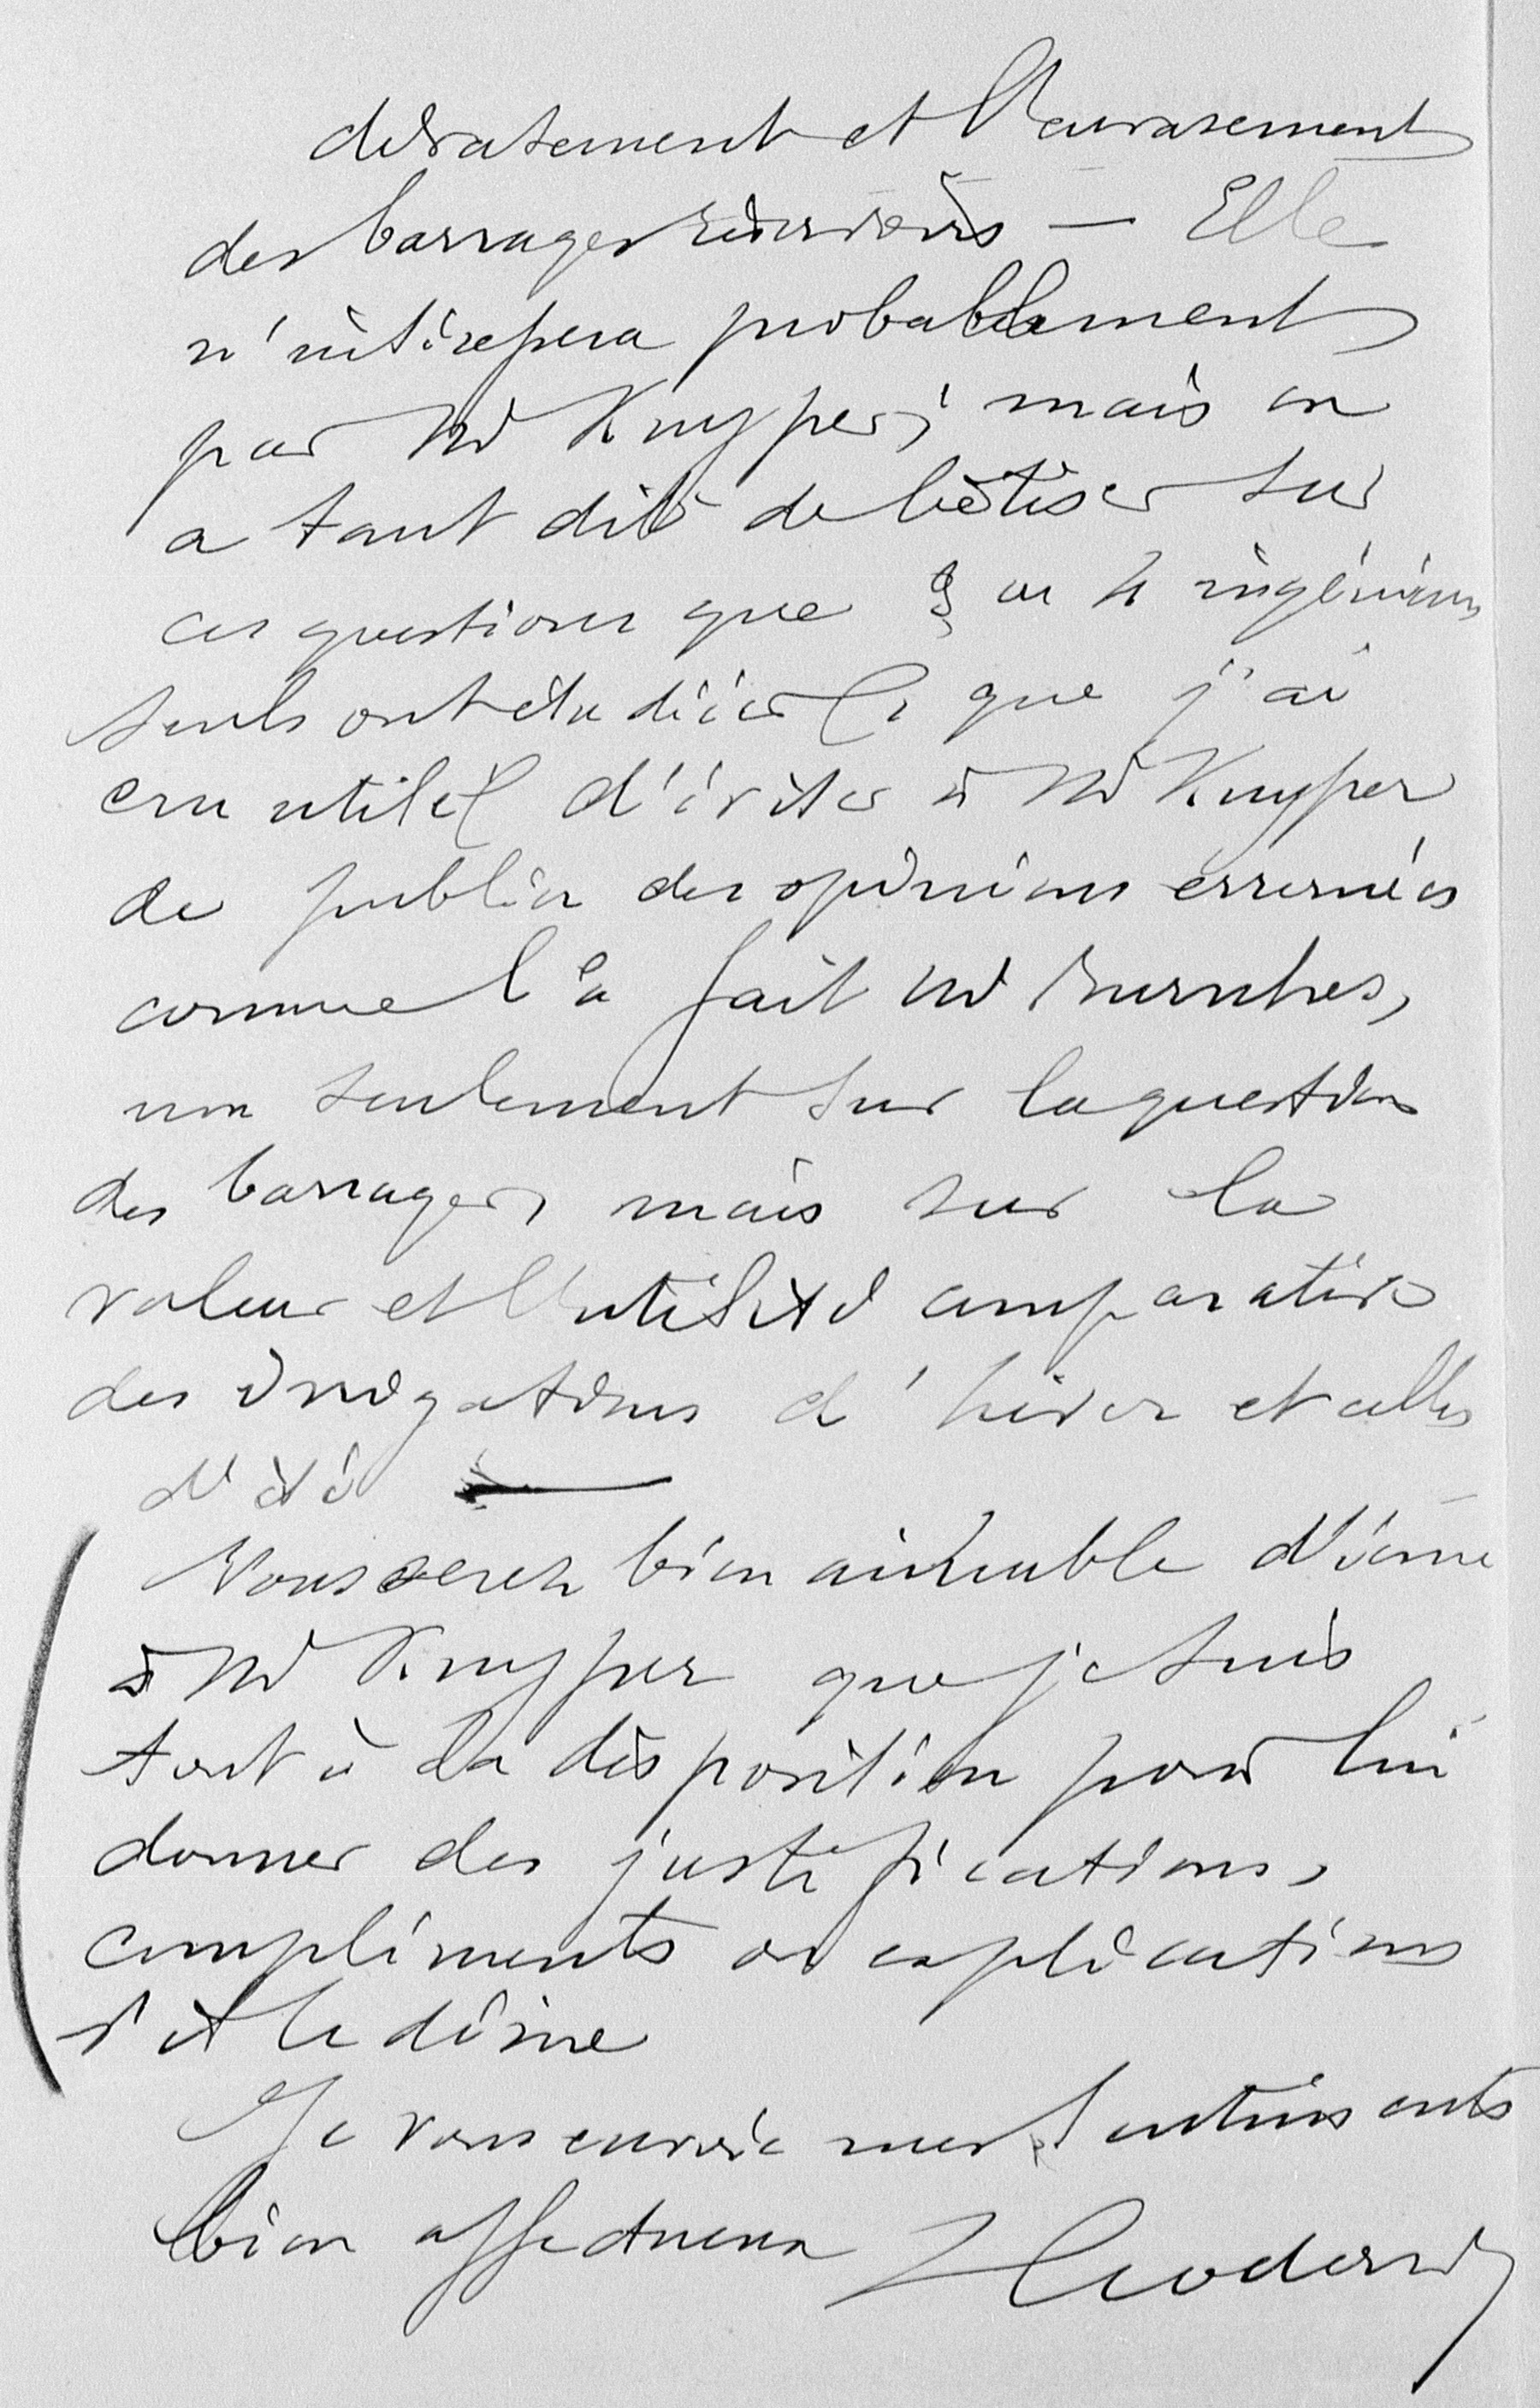 dévasement et l'envasement
des barrages réservoirs — Elle
n'intéressera probablement
pas Mr Kuyper; mais on
a tant dit de bêtises sur
ces questions que 3 ou 4 ingénieurs
seuls ont étudiées que j'ai
cru utile d'éviter à Mr Kuyper
de publier des opinions erronées
comme l'a fait Mr Brunhes,
non seulement sur la question
des barrages, mais sur la
valeur et l'utilité comparative
des irrigations d'hiver et celles
d'été —
Vous serez bien aimable d'écrire
à Mr Kuyper que je suis
tout à sa disposition pour lui
donner des justifications,
compliments ou explications
s'il le désire
Je vous envoie mes sentiments
bien affectueux